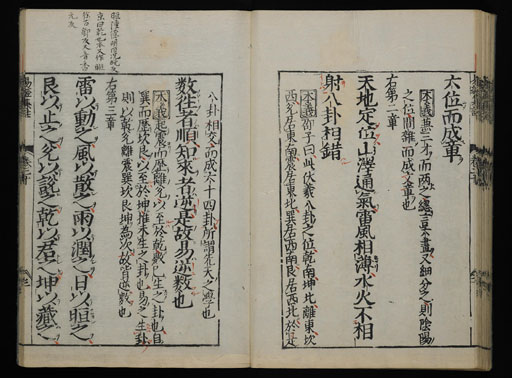 六位而成章
本義兼三才而兩之總言六畫又細分之則陰陽
之位間雜而成文章也
右第二章
天地定位山澤通氣雷風相薄水火不相
射八卦相錯
本義邵子曰此伏羲八卦之位乾南坤北離東坎
西兌居東南震居東北巽居西南艮居西北於是
八卦相交而成六十四卦所謂先天之學也
數往者順知來者逆是故易逆數也
本義起震而歷離兌以至於乾數已生之卦也自
巽而歷坎艮以至於坤推未生之卦也易之生卦
則以乾兌離震巽坎艮坤為次故皆逆數也
右第三章
雷以動之風以散之雨以潤之日以晅之
艮以止之兌以說之乾以君之坤以藏之